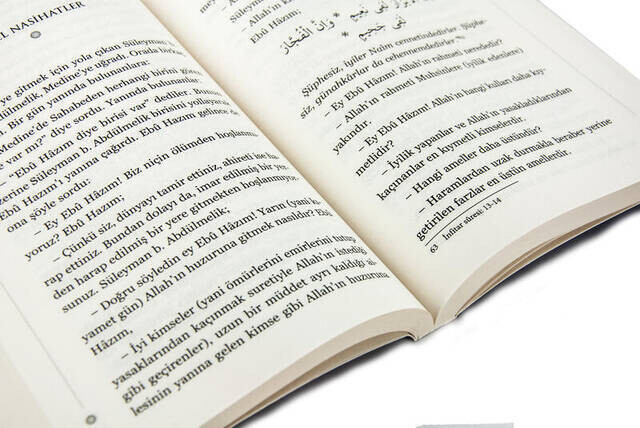 L NASİHATLER
ye gitmek için yola çıkan Süleyman
dülmelik, Medine'ye uğradı. Orada bir
Bir gün yanında bulunanlara:
Medine'de Sahabeden herhangi birini gören
ve var mı?" diye sordu. Yanında bulunanlar:
Ebû Hâzım diye birisi var" dediler. Bunun
zerine Süleyman b. Abdülmelik birisini yollayarak
Ebû Hazım'ı yanına çağırdı. Ebû Hazım gelince de
ona şöyle sordu:
– Ey Ebû Hâzım! Biz niçin ölümden hoşlanmı-
yoruz? Ebû Hazım;
– Çünkü siz, dünyayı tamir ettiniz, ahireti ise ha-
rap ettiniz. Bundan dolayı da, imar edilmiş bir yer-
den harap edilmiş bir yere gitmekten hoşlanmıyor-
sunuz. Süleyman b. Abdülmelik;
– Doğru söyledin ey Ebû Hâzım! Yarın (yani kı-
yamet gün) Allah'ın huzuruna gitmek nasıldır? Ebû
Hâzım,
– İyi kimseler (yani ömürlerini emirlerini tutup
yasaklarından kaçınmak suretiyle Allah'ın istediği
gibi geçirenler), uzun bir müddet ayrı kaldığı ai-
lesinin yanına gelen kimse gibi Allah'ın huzuruna
لَفِي نَعِيمٍ * وَإِنَّ الْفُجَّارَ لَفِي جَحِيمٍ
Şüphesiz, iyiler Naîm cennetindedirler. Şüphe-
siz, günahkârlar da cehennemdedirler."
– Ey Ebû Hâzım! Allah'ın rahmeti nerededir?
– Allah'ın rahmeti Muhsinlere (iyilik edenlere)
yakındır.
– Ey Ebû Hâzım! Allah'ın hangi kulları daha kıy-
metlidir?
– İyilik yapanlar ve Allah'ın yasakladıklarından
kaçınanlar en kıymetli kimselerdir.
– Hangi ameller daha üstündür?
– Haramlardan uzak durmakla beraber yerine
getirilen farzlar en üstün amellerdir.
63 İnfitar sûresi: 13-14